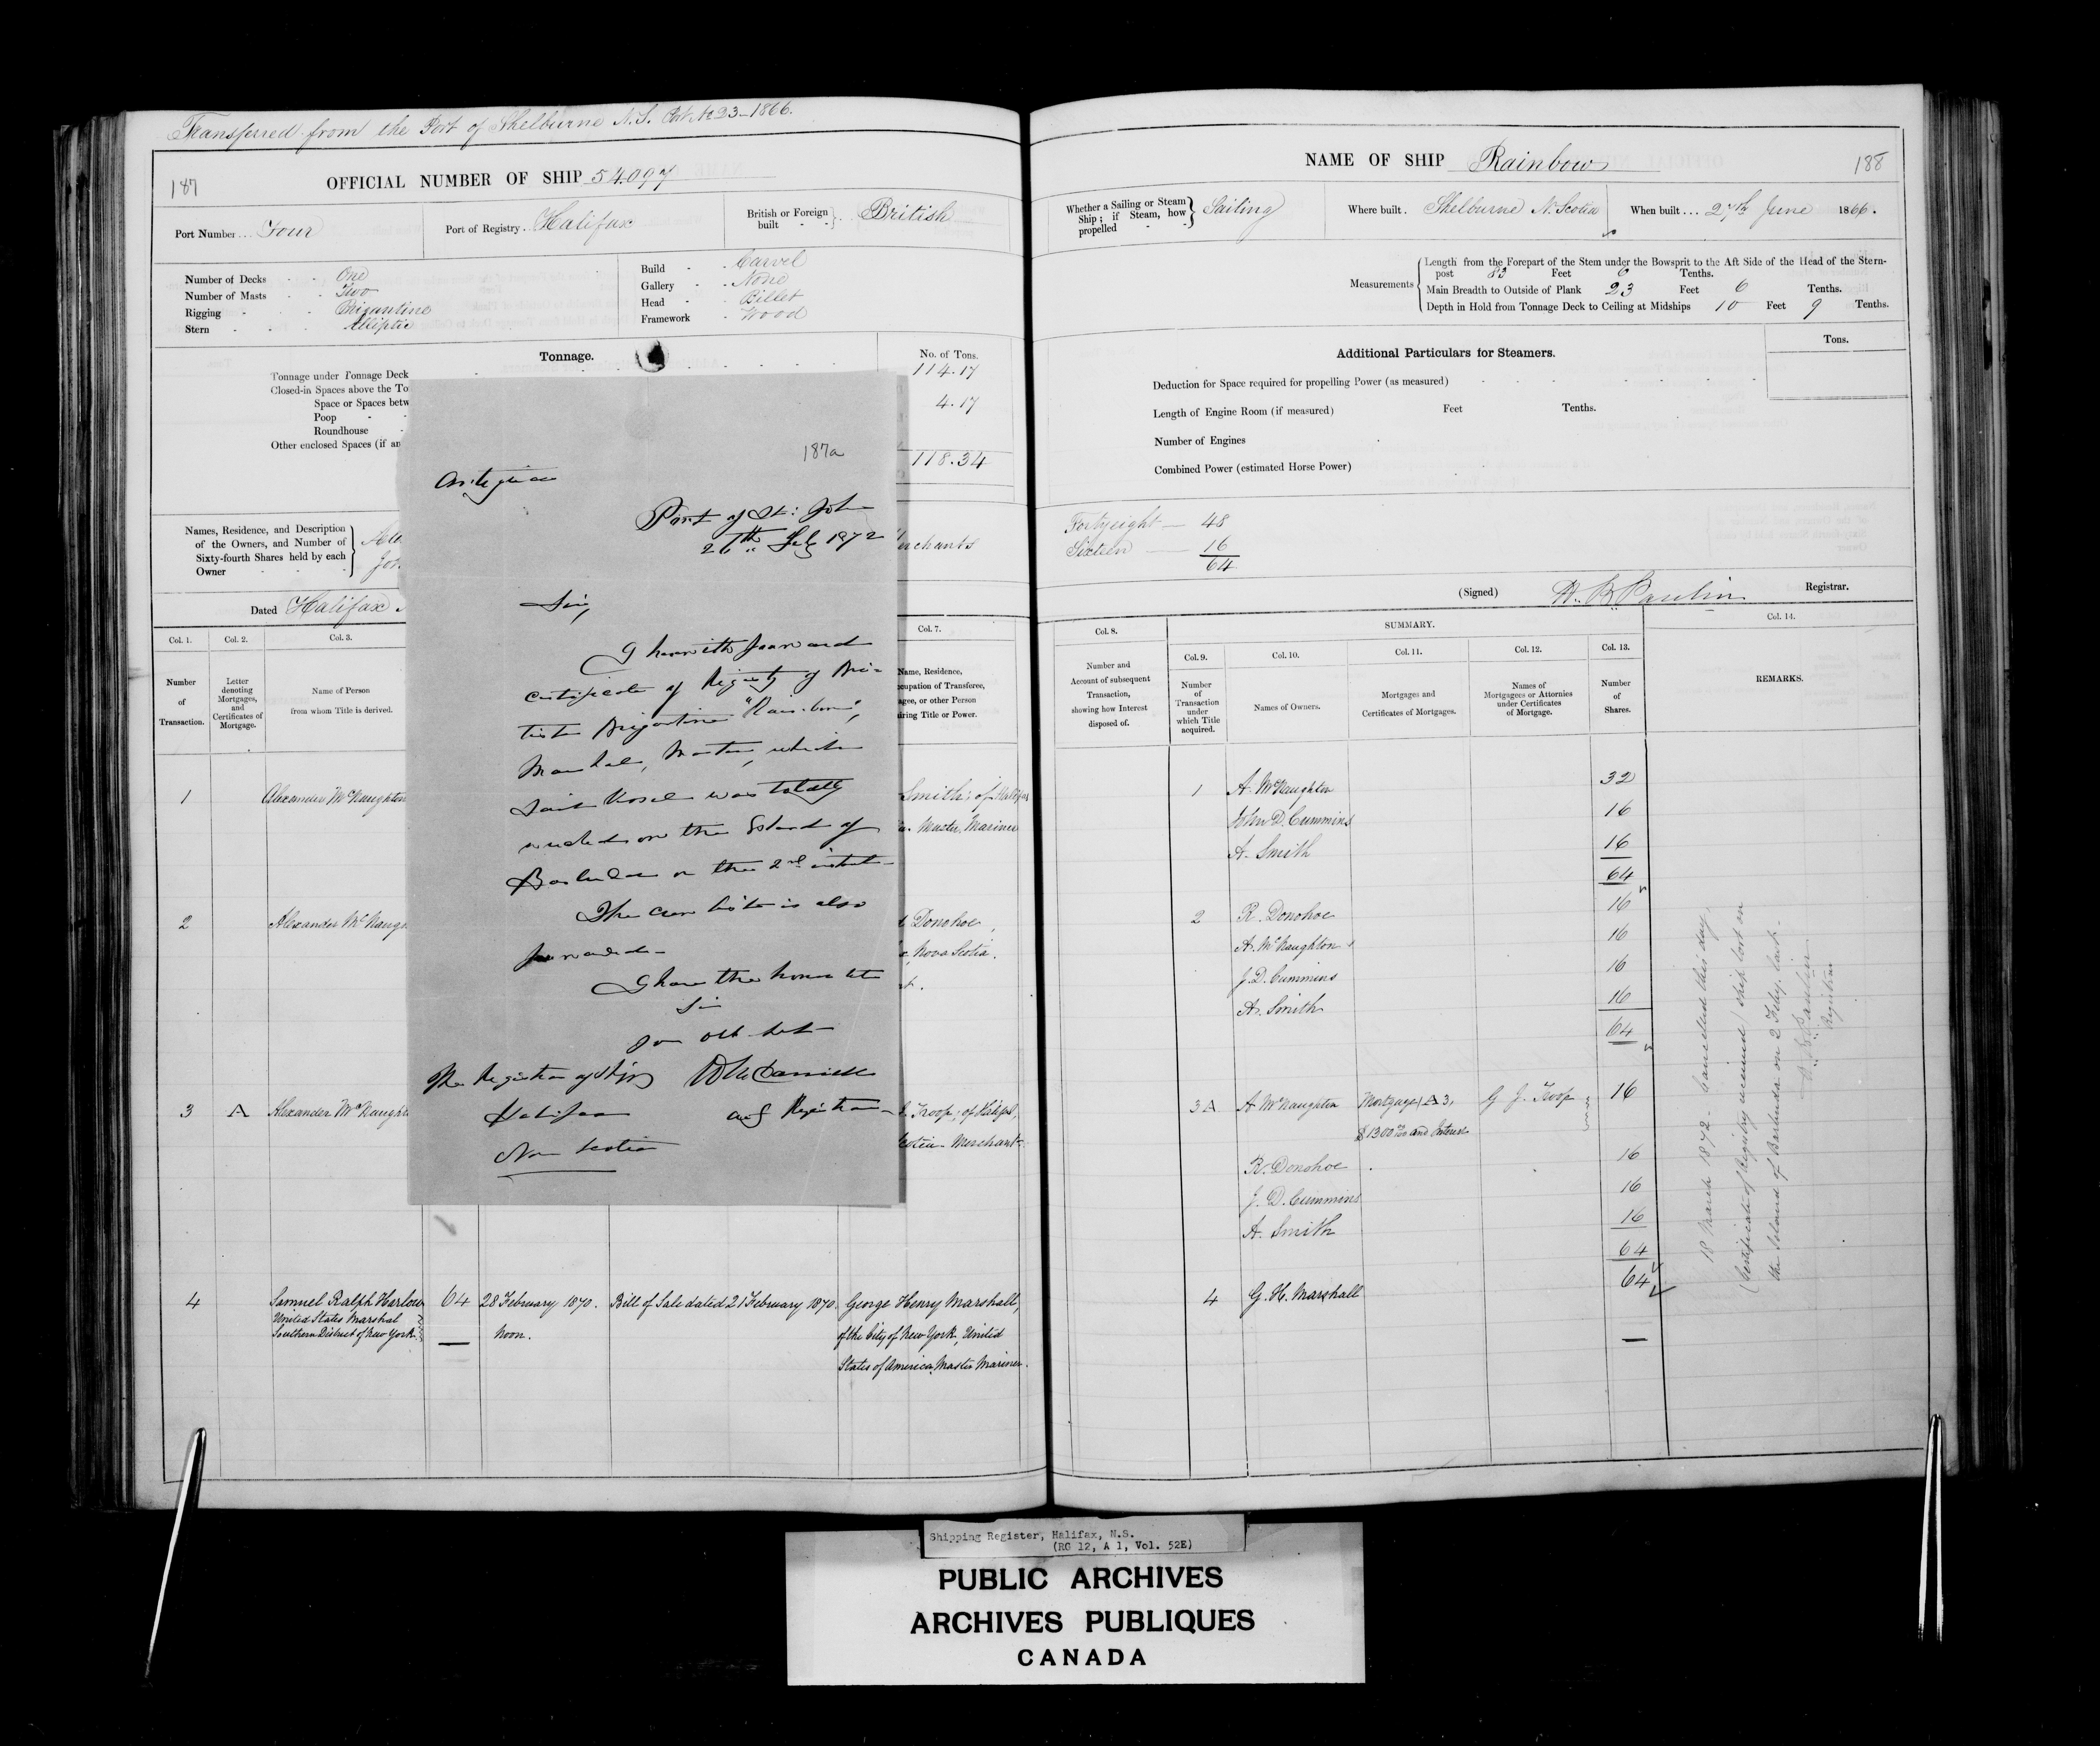 Transferred from the Port of Shelburne N.S. Port No 23-1866.
187
OFFICIAL NUMBER OF SHIP 54.097
Port Number... Four
Port of Registry. Halifax
British or Foreign built British
Number of Decks One
Number of Masts Two
Rigging Brigantine
Stern Elliptic
Build Carvel
Gallery None
Head Billet
Framework Wood
Tonnage.
No. of Tons.
Tonnage under Tonnage Deck 114.17
Closed-in Spaces above the To
Space or Spaces betw 4.17
Poop
Roundhouse
Other enclosed Spaces (if an
118.34
Names, Residence, and Description
of the Owners, and Number of
Sixty-fourth Shares held by each
Owner
rchants
Dated Halifax
Col. 1.
Col. 2.
Col. 3.
Col. 7.
Number
of
Transaction.
Letter
denoting
Mortgages,
and
Certificates of
Mortgage.
Name of Person
from whom Title is derived.
Name, Residence,
cupation of Transferee,
agee, or other Person
iring Title or Power.
1
Alexander McNaughton
Smith; of Halifax
Master Mariner
2
Alexander McNaugh
Donohoe,
Nova Scotia.
3 A Alexander McNaught
Troop; of Halifax,
cotia Merchant
4
Samuel Ralph Harlow
United States Marshal
Southern District of New York.
64
28 February 1870.
Noon.
Bill of Sale dated 21 February 1870.
George Henry Marshall,
of the City of New York, United
States of America Master Mariner.
187a
Antigua
Port of St: John
26th Feby 1872
Sir,
I herewith forward
certificate of Registry of Bri-
tish Brigantine "Rainbow",
Marshal, Master, which
said Vessel was totally
wrecked on the Island of
Barbuda on the 2nd instant-
The crew list is also
forwarded-
I have the honor &c
Sir
your obt servt
The Registrar of Ships
Halifax
Nova Scotia
actg Registrar
NAME OF SHIP Rainbow
188
Whether a Sailing or Steam
Ship; if Steam, how
propelled
Sailing
Where built. Shelburne N. Scotia
When built... 27th June 1866.
Measurements
Length from the Forepart of the Stem under the Bowsprit to the Aft Side of the Head of the Stern-
post 83 Feet 6 Tenths.
Main Breadth to Outside of Plank 23 Feet 6 Tenths.
Depth in Hold from Tonnage Deck to Ceiling at Midships 10 Feet 9 Tenths.
Additional Particulars for Steamers.
Tons.
Deduction for Space required for propelling Power (as measured)
Length of Engine Room (if measured) Feet Tenths.
Number of Engines
Combined Power (estimated Horse Power)
Fortyeight - 48
Sixteen - 16
64
(Signed) H. B. Paulin Registrar.
Col. 8.
SUMMARY.
Col. 14.
Col. 9.
Col. 10.
Col. 11.
Col. 12.
Col. 13.
Number and
Account of subsequent
Transaction,
showing how Interest
disposed of.
Number
of
Transaction
under
which Title
acquired.
Names of Owners.
Mortgages and
Certificates of Mortgages.
Names of
Mortgages or Attornies
under Certificates
of Mortgage.
Number
of
Shares.
REMARKS.
1 A. McNaughton 32
John D. Cummins 16
A. Smith 16
64
2 R. Donohoe 16
A. McNaughton 16
J. D. Cummins 16
A. Smith 16
64
3 A A. McNaughton Mortgage (A 3, G J. Troop 16
$1300 and Interest
R. Donohoe 16
J. D. Cummins 16
A. Smith 16
64
4 G. H. Marshall 64
18 March 1872. Cancelled this day
(Certificate of Registry received) Ship lost on
the Island of Barbuda on 2 Feby. last.
H. B. Paulin
Registrar
Shipping Register, Halifax, N.S.
(RG 12, A 1, Vol. 52E)
PUBLIC ARCHIVES
ARCHIVES PUBLIQUES
CANADA